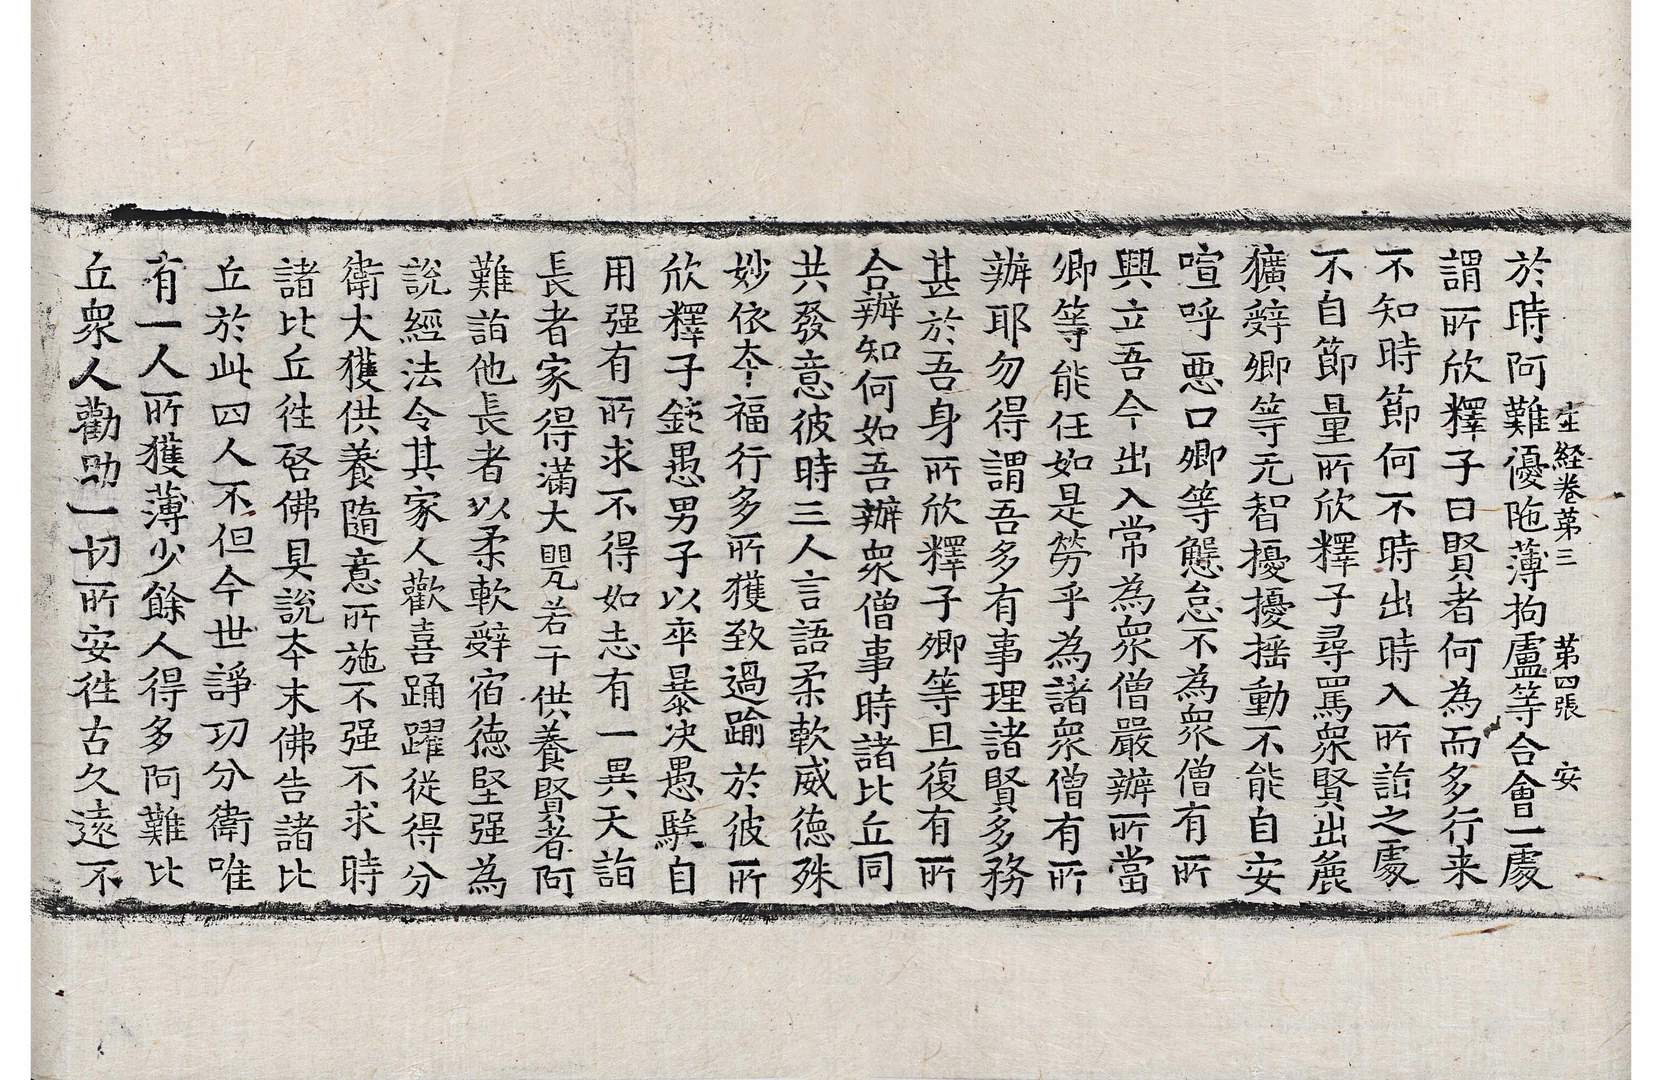 生經卷第三　第四張　安
於時阿難優陁薄拘盧等合會一處
謂所欣釋子曰賢者何為而多行来
不知時節何不時出時入所詣之處
不自節量所欣釋子尋罵衆賢出麁
獷辭卿等无智擾擾揺動不能自安
喧呼惡口卿等態怠不為衆僧有所
興立吾今出入常為衆僧嚴辦所當
卿等能任如是勞乎為諸衆僧有所
辦耶勿得謂吾多有事理諸賢多務
甚於吾身所欣釋子卿等旦復有所
合辦知何如吾辦衆僧事時諸比丘同
共發意彼時三人言語柔軟威德殊
妙依夲福行多所獲致過踰於彼所
欣釋子鈍愚男子以卒暴决愚騃自
用强有所求不得如志有一異天詣
長者家得滿大甖若干供養賢者阿
難詣他長者以柔軟辭宿德堅强為
說經法令其家人歡喜踊躍從得分
衛大獲供養隨意所施不强不求時
諸比丘徃啓佛具說夲末佛告諸比
丘於此四人不但今世諍功分衛唯
有一人所獲薄少餘人得多阿難比
丘衆人勸助一切所安徃古久遠不